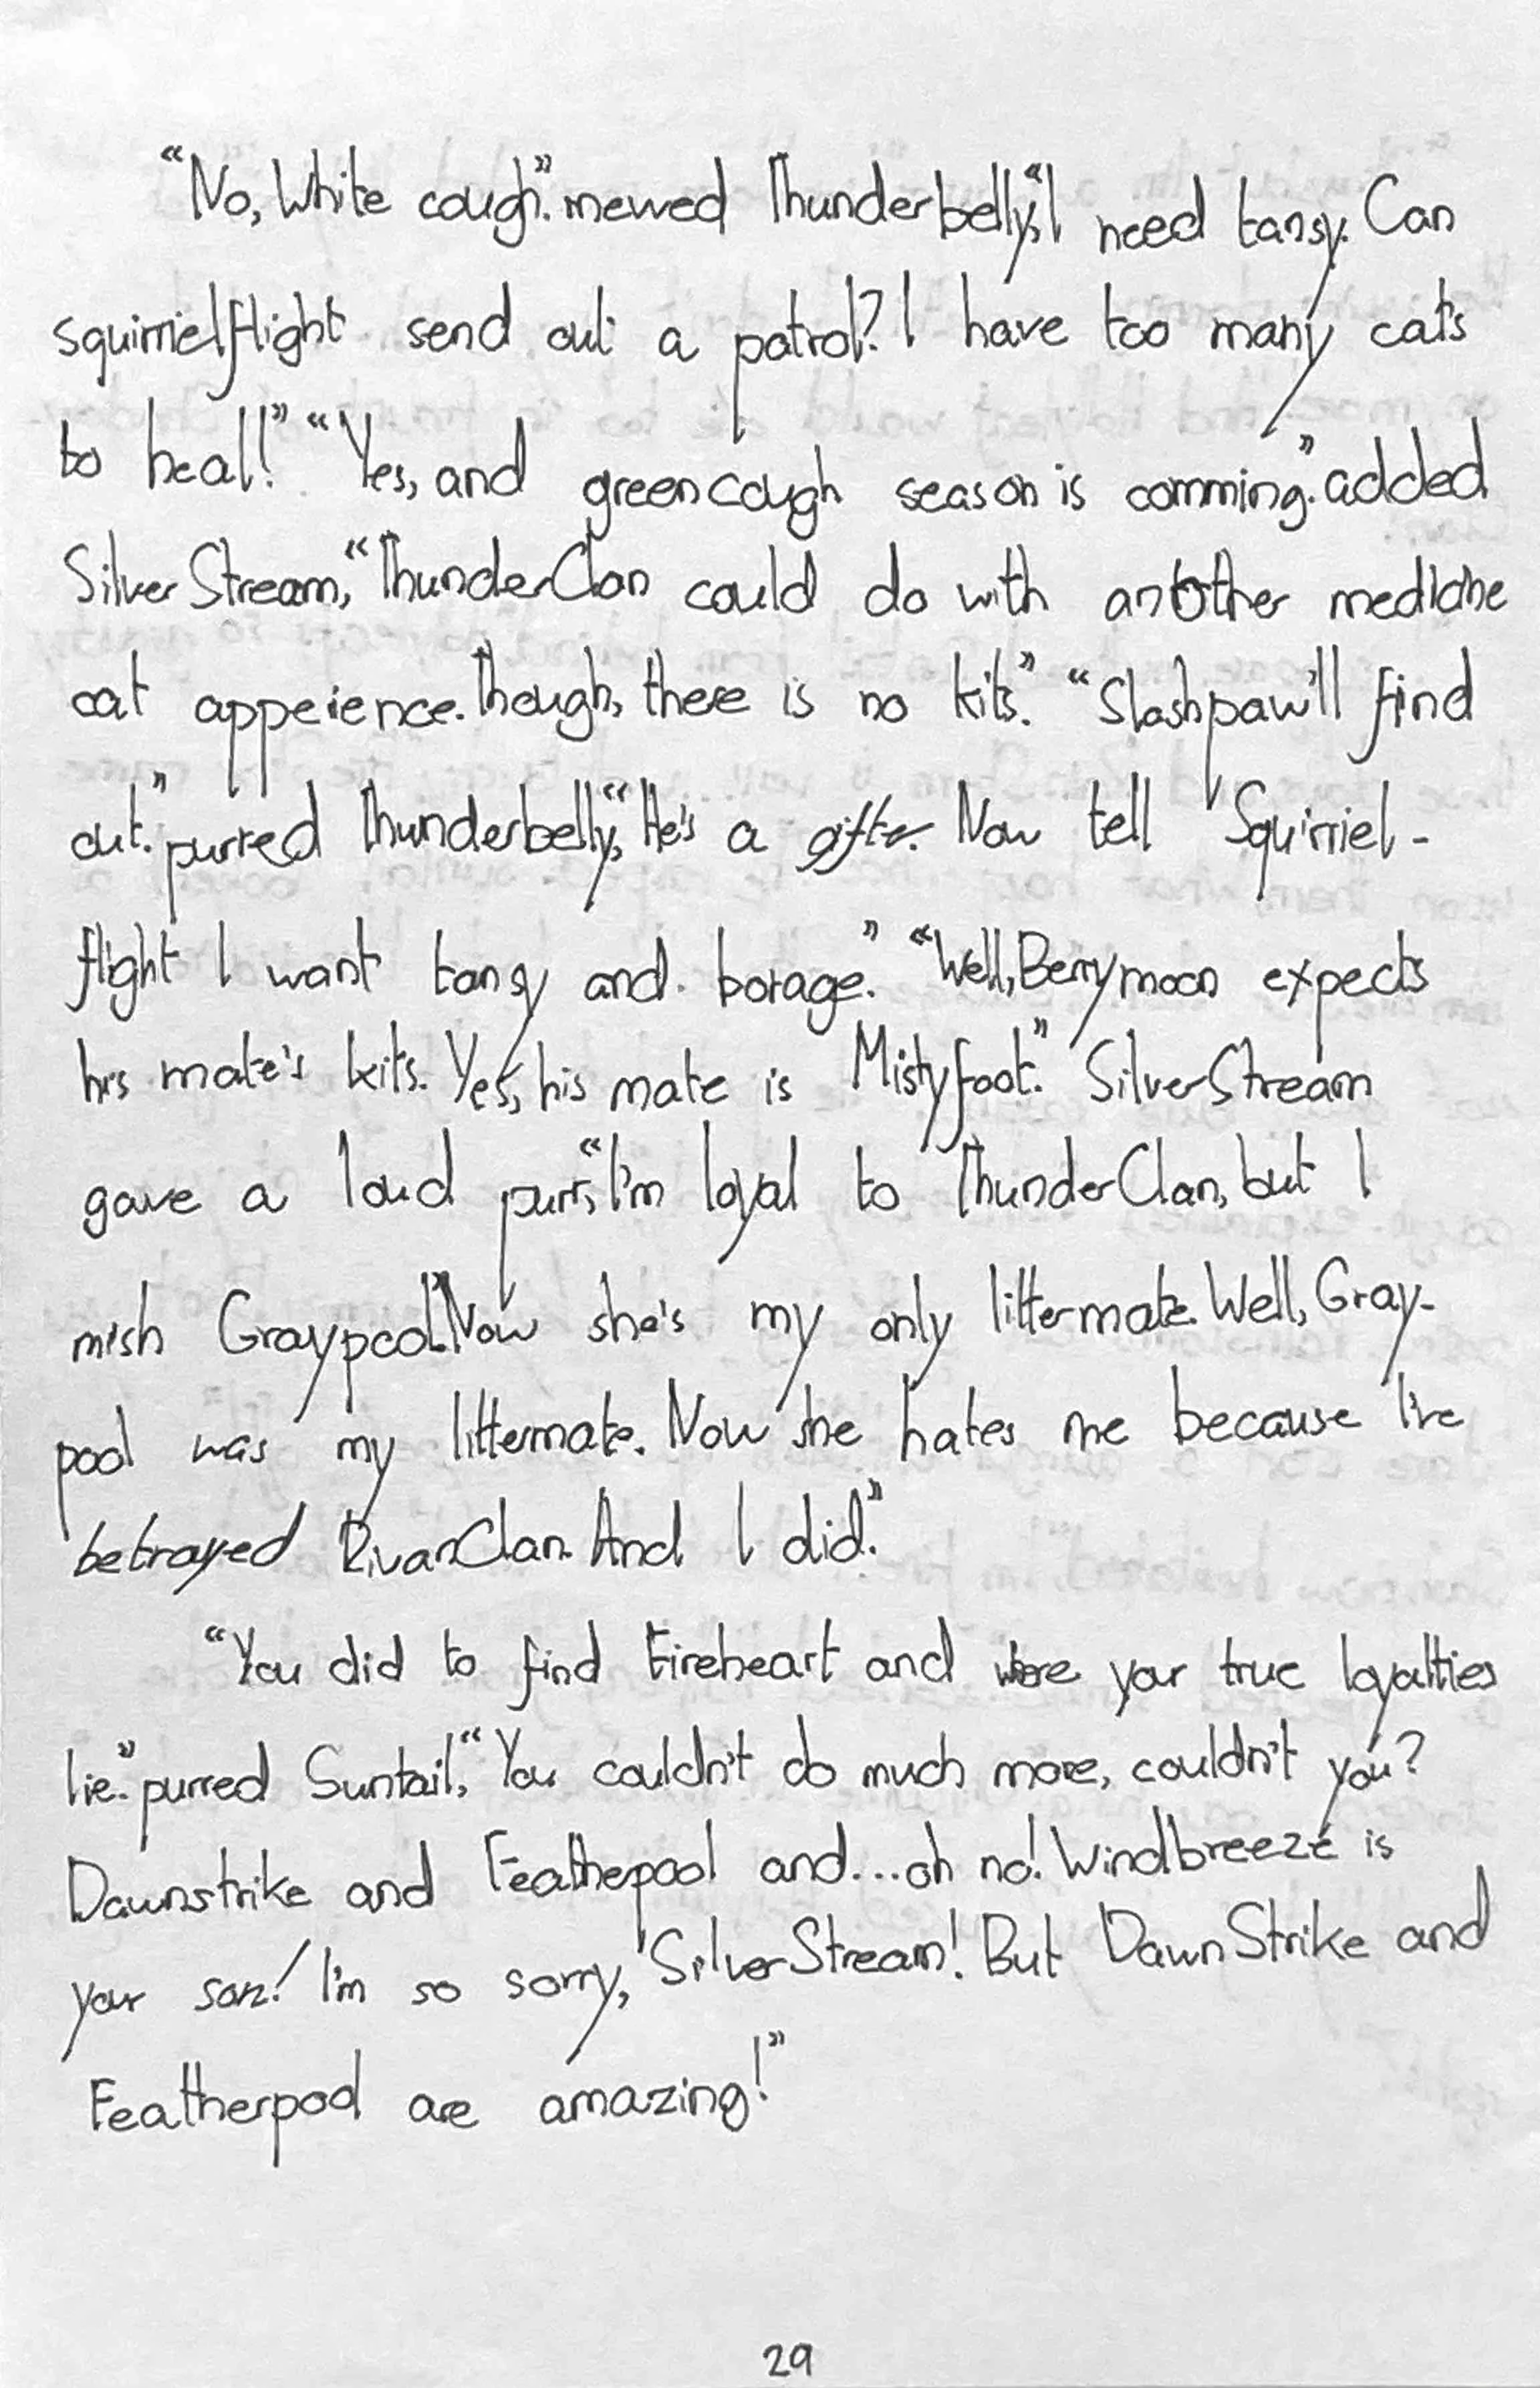 “No, White cough.” mewed Thunderbelly, “I need tansy. Can
squirrielflight send out a patrol? I have too many cats
to heal!” “Yes, and greencough season is comming.” added
SilverStream, “ThunderClan could do with another medicine
cat appeience. Though, there is no kits.” “Slashpaw'll find
out.” purred Thunderbelly, “He's a gifter. Now tell Squirriel-
flight I want tansy and borage.” “Well, Berrymoon expects
his mate's kits. Yes, his mate is Mistyfoot.” SilverStream
gave a loud purr, “I'm loyal to ThunderClan, but I
mish Graypool.” Now she's my only littermate. Well, Gray-
pool was my littermate. Now she hates me because I've
betrayed RivarClan. And I did.”
“You did to find Fireheart and were your true loyalties
lie.” purred Suntail, “You couldn't do much more, couldn't you?
Dawnstrike and Feathepool and...oh no! Windbreeze is
your son! I'm so sorry, SilverStream! But DawnStrike and
Featherpool are amazing!”
29